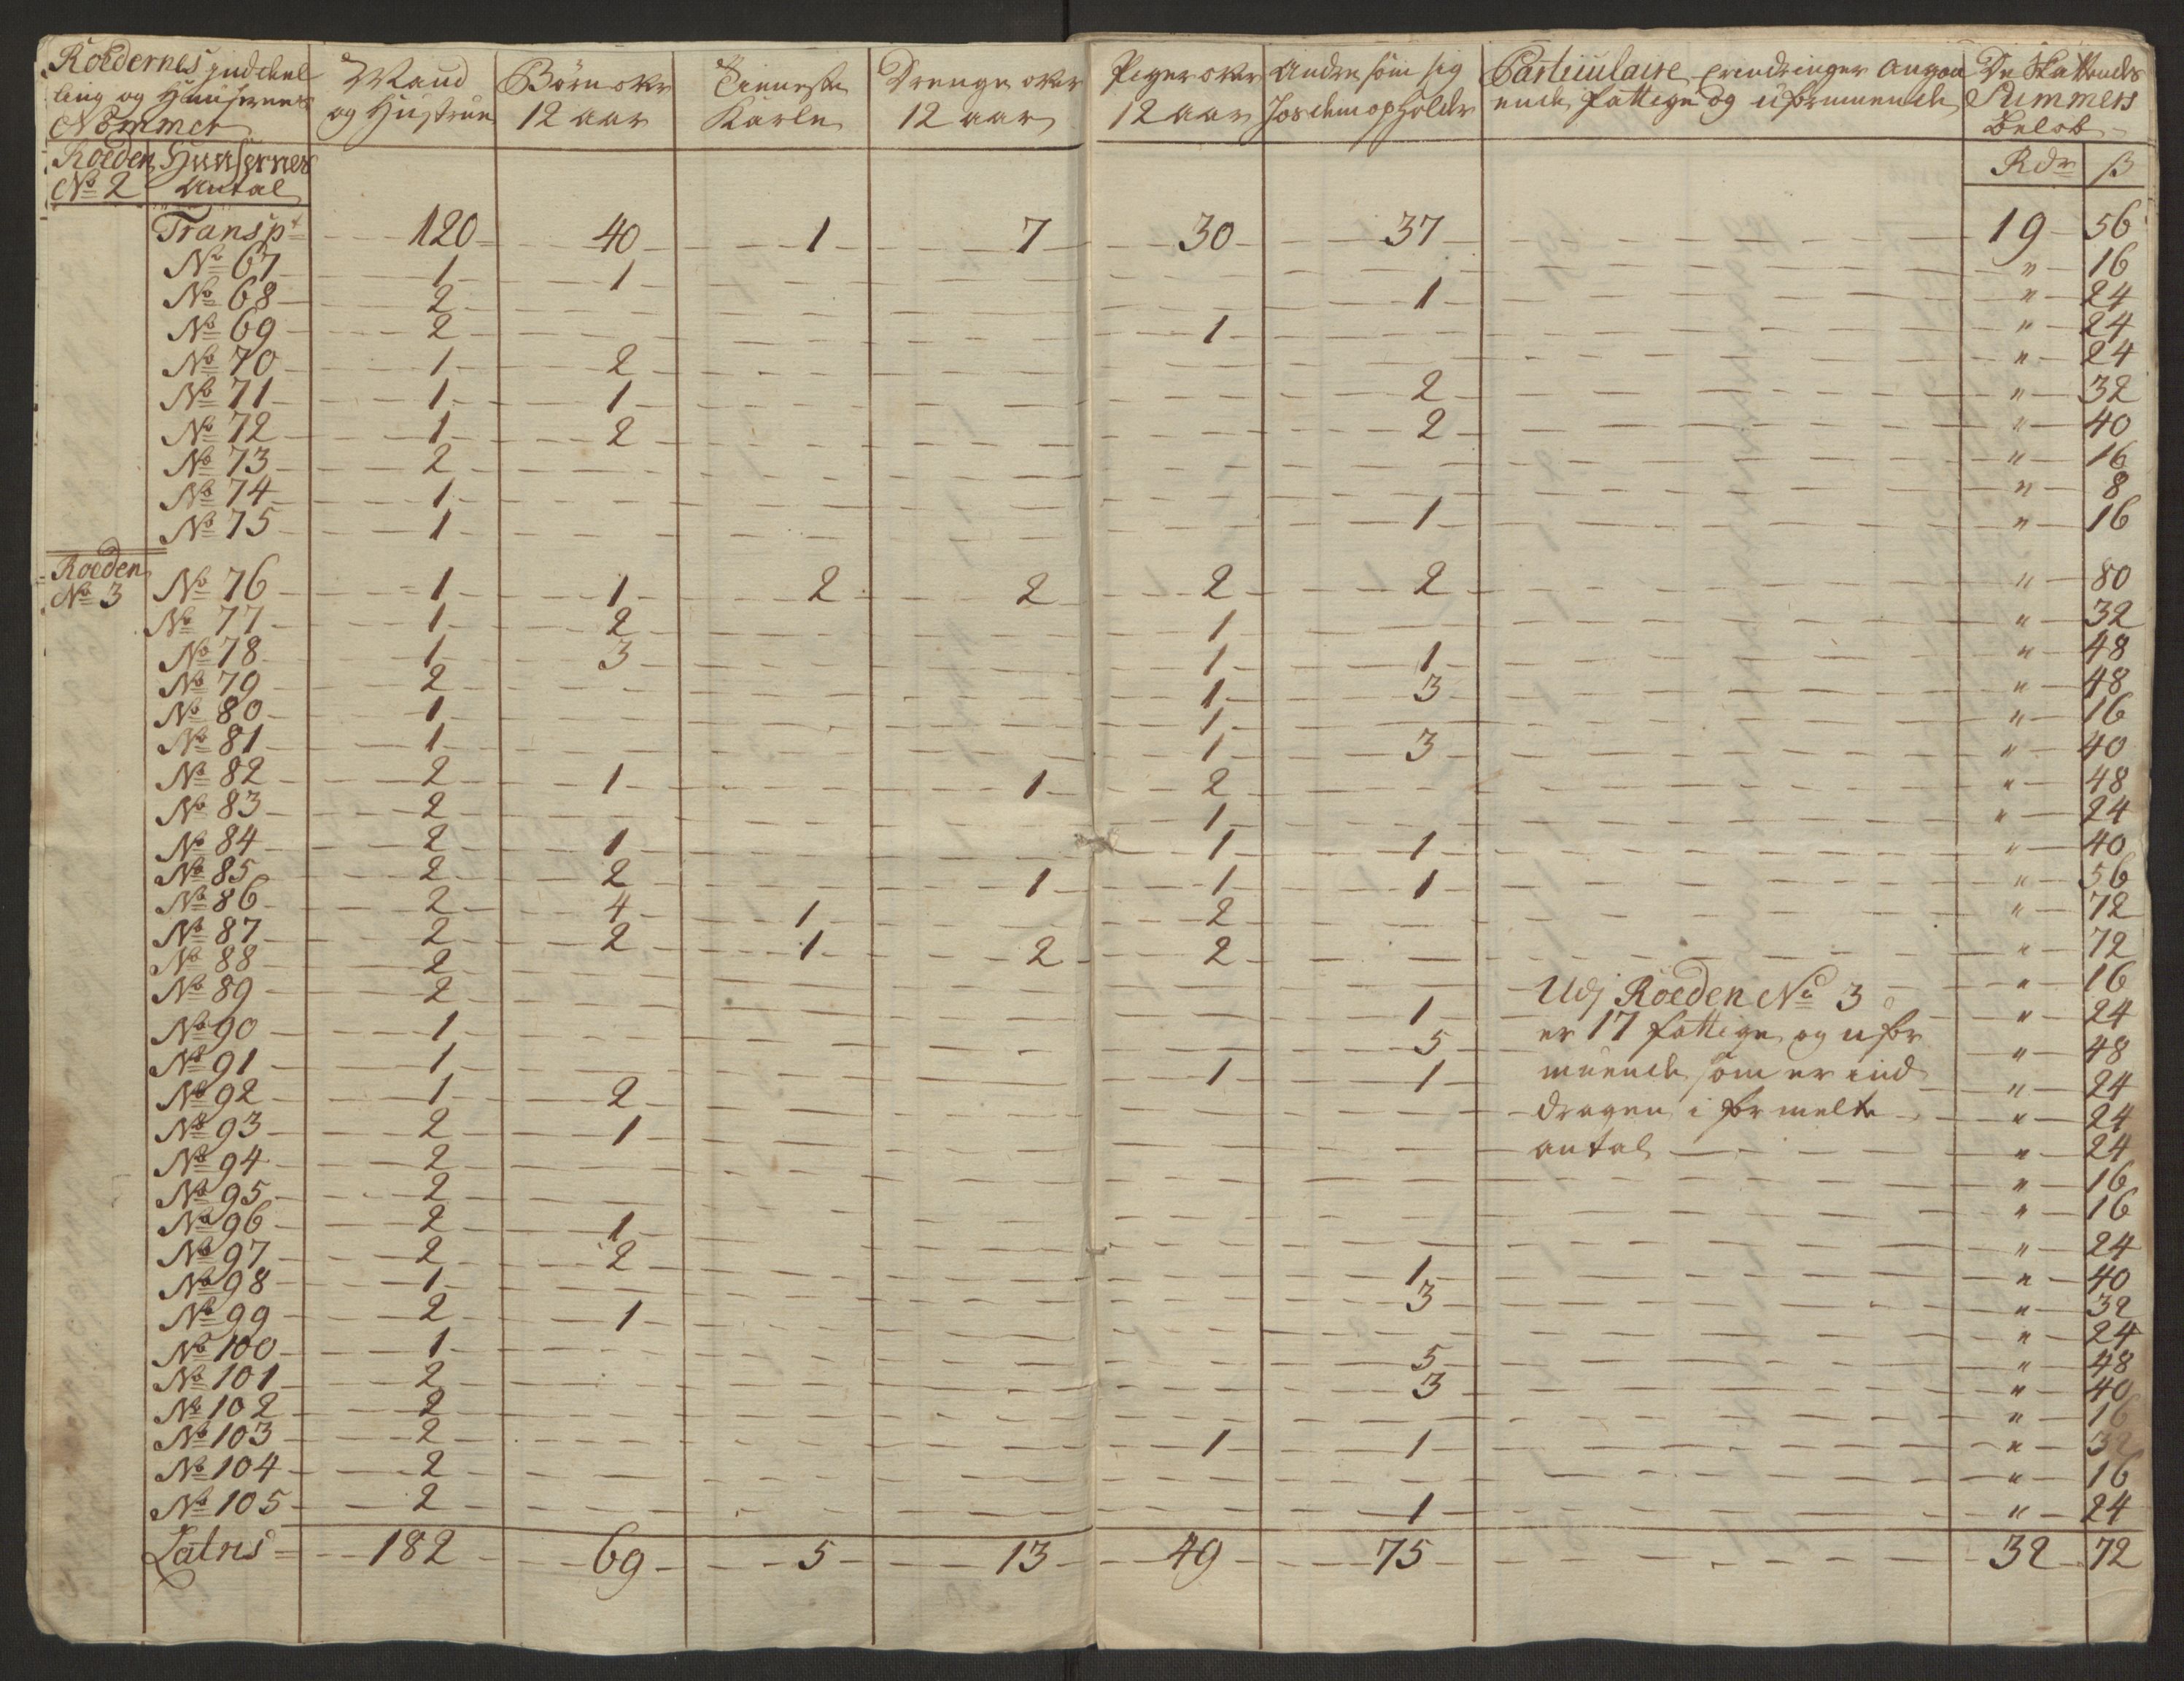 Roedernes inddeel
ling og Huusernes
Nommer
Mand
og Hustrue
Börn over
12 aar
Tienneste
Karle
Drenge over
12 aar
Piger over
12 aar
Andre som sig
Particulaire erindringer angaa
ende fattige og uformuende
De Skattendes
Summers
Beløb
Roeden Huusernes
No 2 Antal
Rdr ß
Transpt 120 40 1 7 30 37 19 56
No 67 1 1 " 16
No 68 2 1 " 24
No 69 2 1 " 24
No 70 1 2 " 24
No 71 1 1 2 " 32
No 72 1 2 2 " 40
No 73 2 " 16
No 74 1 " 8
No 75 1 1 " 16
Roeden
No 3 No 76 1 1 2 2 2 2 " 80
No 77 1 2 1 " 32
No 78 1 3 1 1 " 48
No 79 2 1 3 " 48
No 80 1 1 " 16
No 81 1 1 3 " 40
No 82 2 1 1 2 " 48
No 83 2 1 " 24
No 84 2 1 1 1 " 40
No 85 2 2 1 1 1 " 56
No 86 2 4 1 2 " 72
No 87 2 2 1 2 2 " 72
No 88 2 " 16
No 89 2 1 Udj Roeden No 3 " 24
No 90 1 5 er 17 fattige og ufor " 48
No 91 1 1 1 muende som er ind " 24
No 92 1 2 dragen i formelte " 24
No 93 2 1 antal " 24
No 94 2 " 16
No 95 2 " 16
No 96 2 1 " 24
No 97 2 2 1 " 40
No 98 1 3 " 32
No 99 2 1 " 24
No 100 1 5 " 48
No 101 2 3 " 40
No 102 2 " 16
No 103 2 1 1 " 32
No 104 2 " 16
No 105 2 1 " 24
Latus 182 69 5 13 49 75 32 72